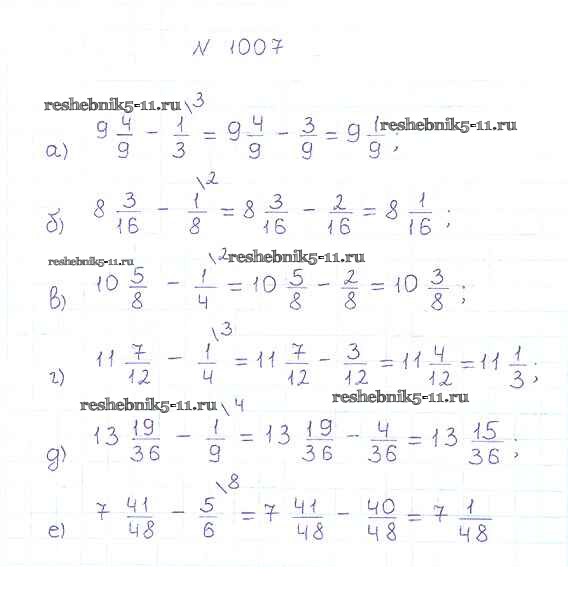 № 1007
reshebnik5-11.ru
а) 9 4/9 - 1/3 \3 = 9 4/9 - 3/9 = 9 1/9;
reshebnik5-11.ru
б) 8 3/16 - 1/8 \2 = 8 3/16 - 2/16 = 8 1/16;
reshebnik5-11.ru
reshebnik5-11.ru
в) 10 5/8 - 1/4 \2 = 10 5/8 - 2/8 = 10 3/8;
г) 11 7/12 - 1/4 \3 = 11 7/12 - 3/12 = 11 4/12 = 11 1/3;
reshebnik5-11.ru
reshebnik5-11.ru
д) 13 19/36 - 1/9 \4 = 13 19/36 - 4/36 = 13 15/36;
е) 7 41/48 - 5/6 \8 = 7 41/48 - 40/48 = 7 1/48